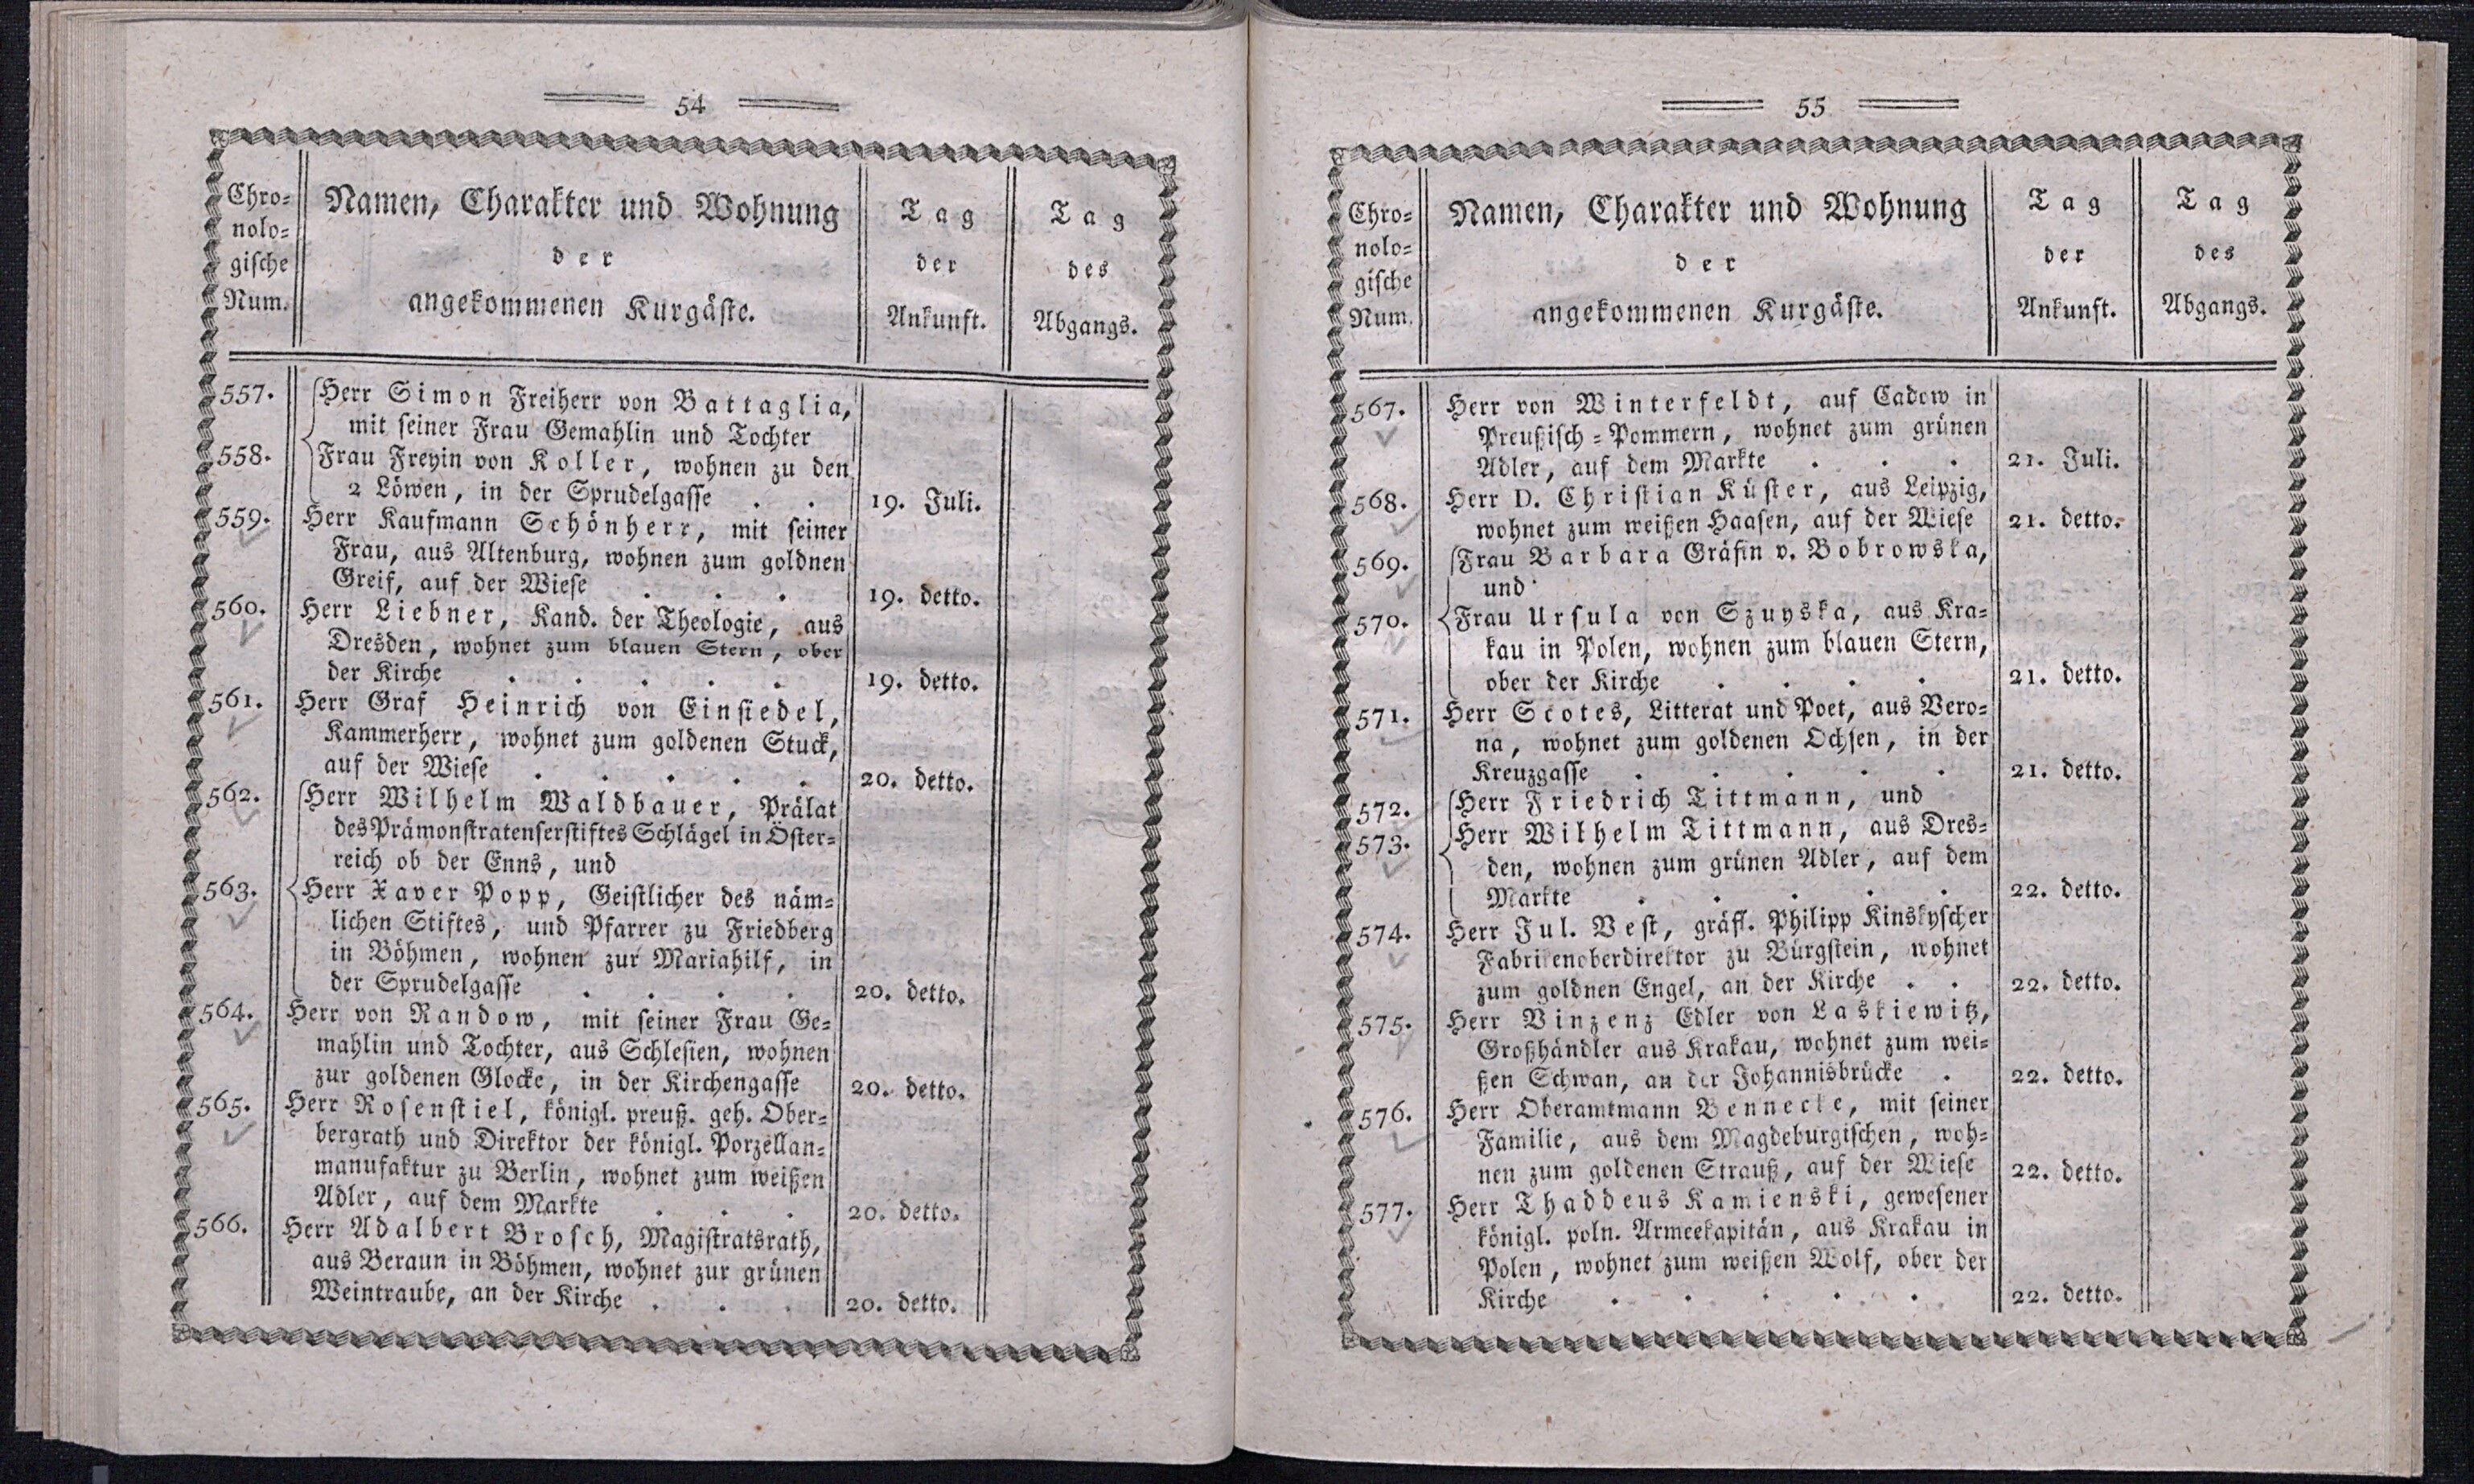 54
Chro-
nolo-
gische
Num.
Namen, Charakter und Wohnung
der
angekommenen Kurgäste.
Tag
der
Ankunft.
Tag
des
Abgangs.
557. Herr Simon Freiherr von Battaglia,
mit seiner Frau Gemahlin und Tochter
558. Frau Freyin von Koller, wohnen zu den
2 Löwen, in der Sprudelgasse . . 19. Juli.
559. Herr Kaufmann Schönherr, mit seiner
Frau, aus Altenburg, wohnen zum goldnen
Greif, auf der Wiese . . . 19. detto.
560. Herr Liebner, Kand. der Theologie, aus
Dresden, wohnet zum blauen Stern, ober
der Kirche . . . . . 19. detto.
561. Herr Graf Heinrich von Einsiedel,
Kammerherr, wohnet zum goldenen Stuck,
auf der Wiese . . . . . 20. detto.
562. Herr Wilhelm Waldbauer, Prälat
des Prämonstratenserstiftes Schlägel in Öster-
reich ob der Enns, und
563. Herr Xaver Popp, Geistlicher des näm-
lichen Stiftes, und Pfarrer zu Friedberg
in Böhmen, wohnen zur Mariahilf, in
der Sprudelgasse . . . . 20. detto.
564. Herr von Randow, mit seiner Frau Ge-
mahlin und Tochter, aus Schlesien, wohnen
zur goldenen Glocke, in der Kirchengasse 20. detto.
565. Herr Rosenstiel, königl. preuß. geh. Ober-
bergrath und Direktor der königl. Porzellan-
manufaktur zu Berlin, wohnet zum weißen
Adler, auf dem Markte . . . 20. detto.
566. Herr Adalbert Brosch, Magistratsrath,
aus Beraun in Böhmen, wohnet zur grünen
Weintraube, an der Kirche . . . 20. detto.
55
Chro-
nolo-
gische
Num.
Namen, Charakter und Wohnung
der
angekommenen Kurgäste.
Tag
der
Ankunft.
Tag
des
Abgangs.
567. Herr von Winterfeldt, auf Cadow in
Preußisch-Pommern, wohnet zum grünen
Adler, auf dem Markte . . . 21. Juli.
568. Herr D. Christian Küster, aus Leipzig,
wohnet zum weißen Haasen, auf der Wiese 21. detto.
569. Frau Barbara Gräfin v. Bobrowska,
und
570. Frau Ursula von Szuyska, aus Kra-
kau in Polen, wohnen zum blauen Stern,
ober der Kirche . . . . 21. detto.
571. Herr Scotes, Litterat und Poet, aus Vero-
na, wohnet zum goldenen Ochsen, in der
Kreuzgasse . . . . . 21. detto.
572. Herr Friedrich Tittmann, und
573. Herr Wilhelm Tittmann, aus Dres-
den, wohnen zum grünen Adler, auf dem
Markte . . . . . 22. detto.
574. Herr Jul. Vest, gräfl. Philipp Kinskyscher
Fabrikenoberdirektor zu Bürgstein, wohnet
zum goldnen Engel, an der Kirche . . 22. detto.
575. Herr Vinzenz Edler von Laskiewitz,
Großhändler aus Krakau, wohnet zum wei-
ßen Schwan, an der Johannisbrücke . 22. detto.
576. Herr Oberamtmann Bennecke, mit seiner
Familie, aus dem Magdeburgischen, woh-
nen zum goldenen Strauß, auf der Wiese 22. detto.
577. Herr Thaddeus Kamienski, gewesener
königl. poln. Armeekapitän, aus Krakau in
Polen, wohnet zum weißen Wolf, ober der
Kirche . . . . . 22. detto.